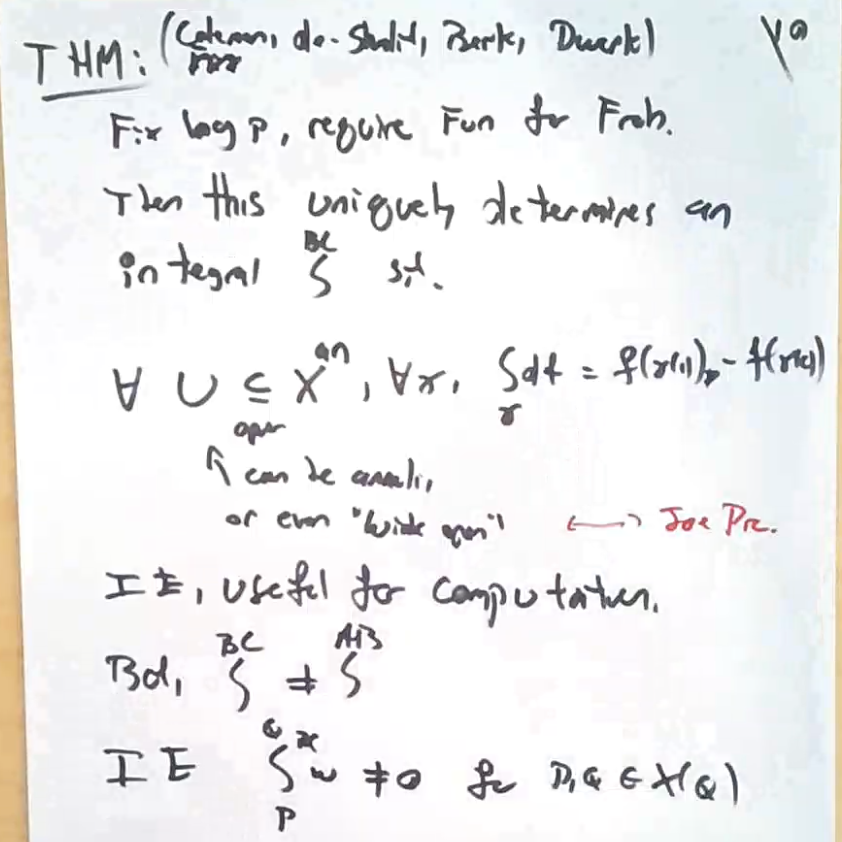 THM: (Coleman, de-Shalit, Berk, Dwork)
Fix log p, require Fun for Frob.
Then this uniquely determines an
integral ∫^BC s.t.
∀ U ⊆ X^an, ∀γ, ∫_γ df = f(γ(1)) - f(γ(0))
open
↑ can be annuli,
or even "wide open" ⟷
IE, useful for computation.
But, ∫^BC ≠ ∫^AB
IE ∫_P^Q ω ≠ 0 for P,Q ∈ X(Q)